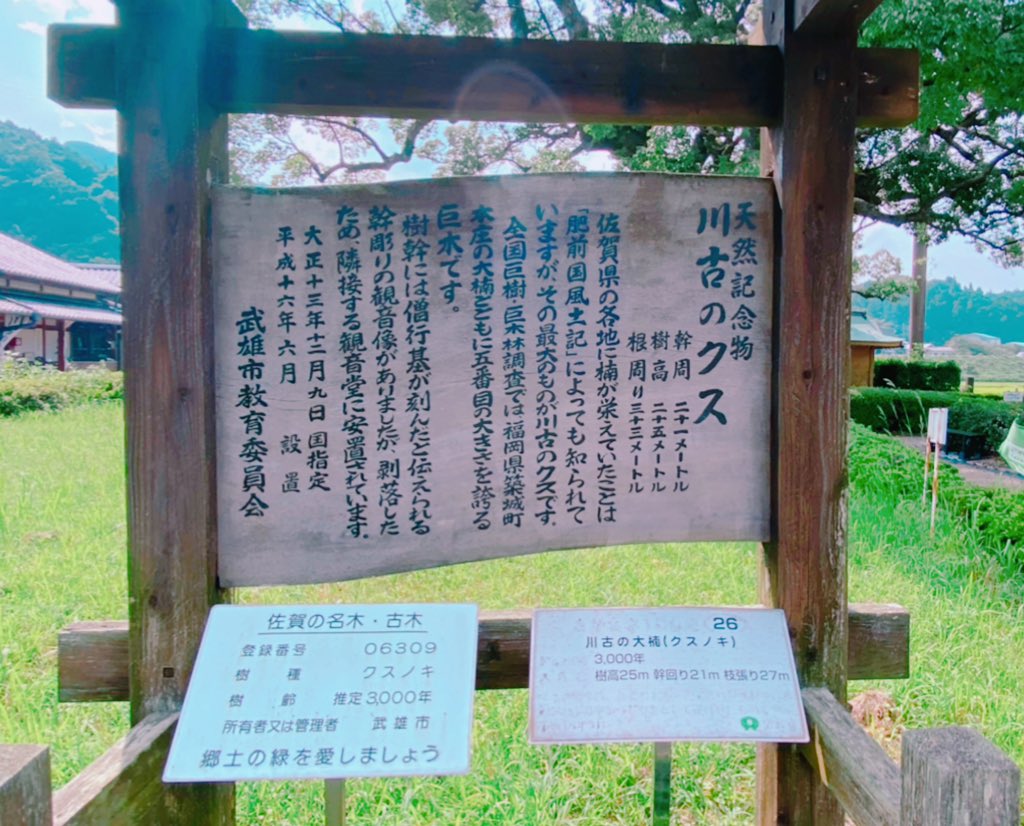 天然記念物
川古のクス
幹周 二十一メートル
樹高 二十五メートル
根周り 三十三メートル
佐賀県の各地に楠が栄えていたことは
「肥前国風土記」によっても知られて
いますが、その最大のものが川古のクスです。
全国巨樹・巨木林調査では福岡県築城町
本庄の大楠とともに五番目の大きさを誇る
巨木です。
樹幹には僧行基が刻んだと伝えられる
幹彫りの観音像がありましたが、剥落した
ため、隣接する観音堂に安置されています。
大正十三年十二月九日 国指定
平成十六年六月 設置
武雄市教育委員会
佐賀の名木・古木
登録番号 06309
樹種 クスノキ
樹齢 推定3,000年
所有者又は管理者 武雄市
郷土の緑を愛しましょう
26
川古の大楠(クスノキ)
3,000年
樹高25m 幹回り21m 枝張り27m